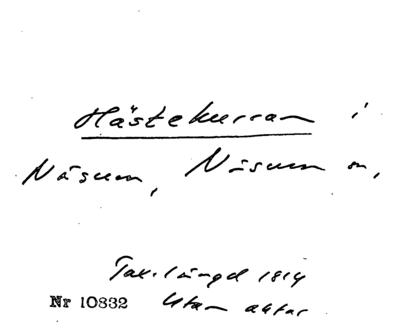 Hästekurran i
Näsum, Näsum sn,
Tax. längd 1814
Nr 10832 Utan aktas